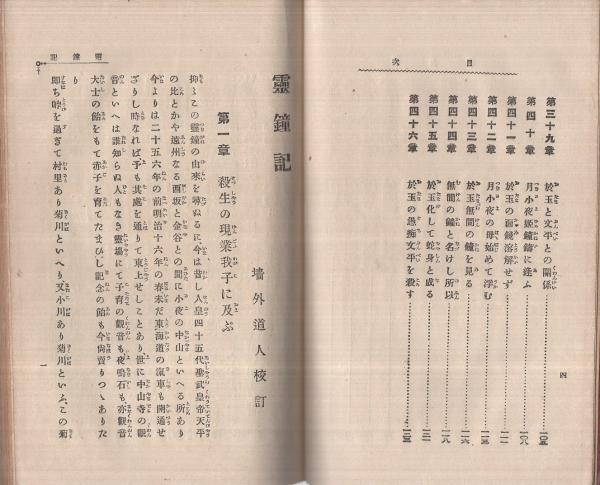 目次
第三十九章 於玉と文平との關係 一〇五
第四十章 月小夜姬鐘鑄に逢ふ 一〇八
第四十一章 於玉の面鏡溶解せず
第四十二章 月小夜の母始めて浮む
第四十三章 於玉無間の鐘を見る
第四十四章 無間の鐘と名けし所以
第四十五章 於玉化して蛇身と成る
第四十六章 於玉の愚痴文平を殺す
四
靈鐘記
靈鐘記
墻外道人校訂
第一章 殺生の現業我子に及ぶ
抑〻この靈鐘の由來を尋ぬるに、今は昔し人皇四十五代聖武皇帝天平
の比とかや遠州なる西坂と金谷との間に小夜の中山といへる所あり
今よりは二十五六年の前明治十六年の春未だ東海道の滊車も開通せ
ざりし時なれば予も其處を通りて東上せしことあり世に中山寺の觀
音といへば誰知らぬ人もなき靈場にて子育の觀音も夜鳴石も亦觀音
大士の飴をもて赤子を育てたまひし記念の飴も今尙賣りつゝありた
り
即ち峠を過ぎて村里あり菊川といへり又小川あり菊川といふ、この菊
一